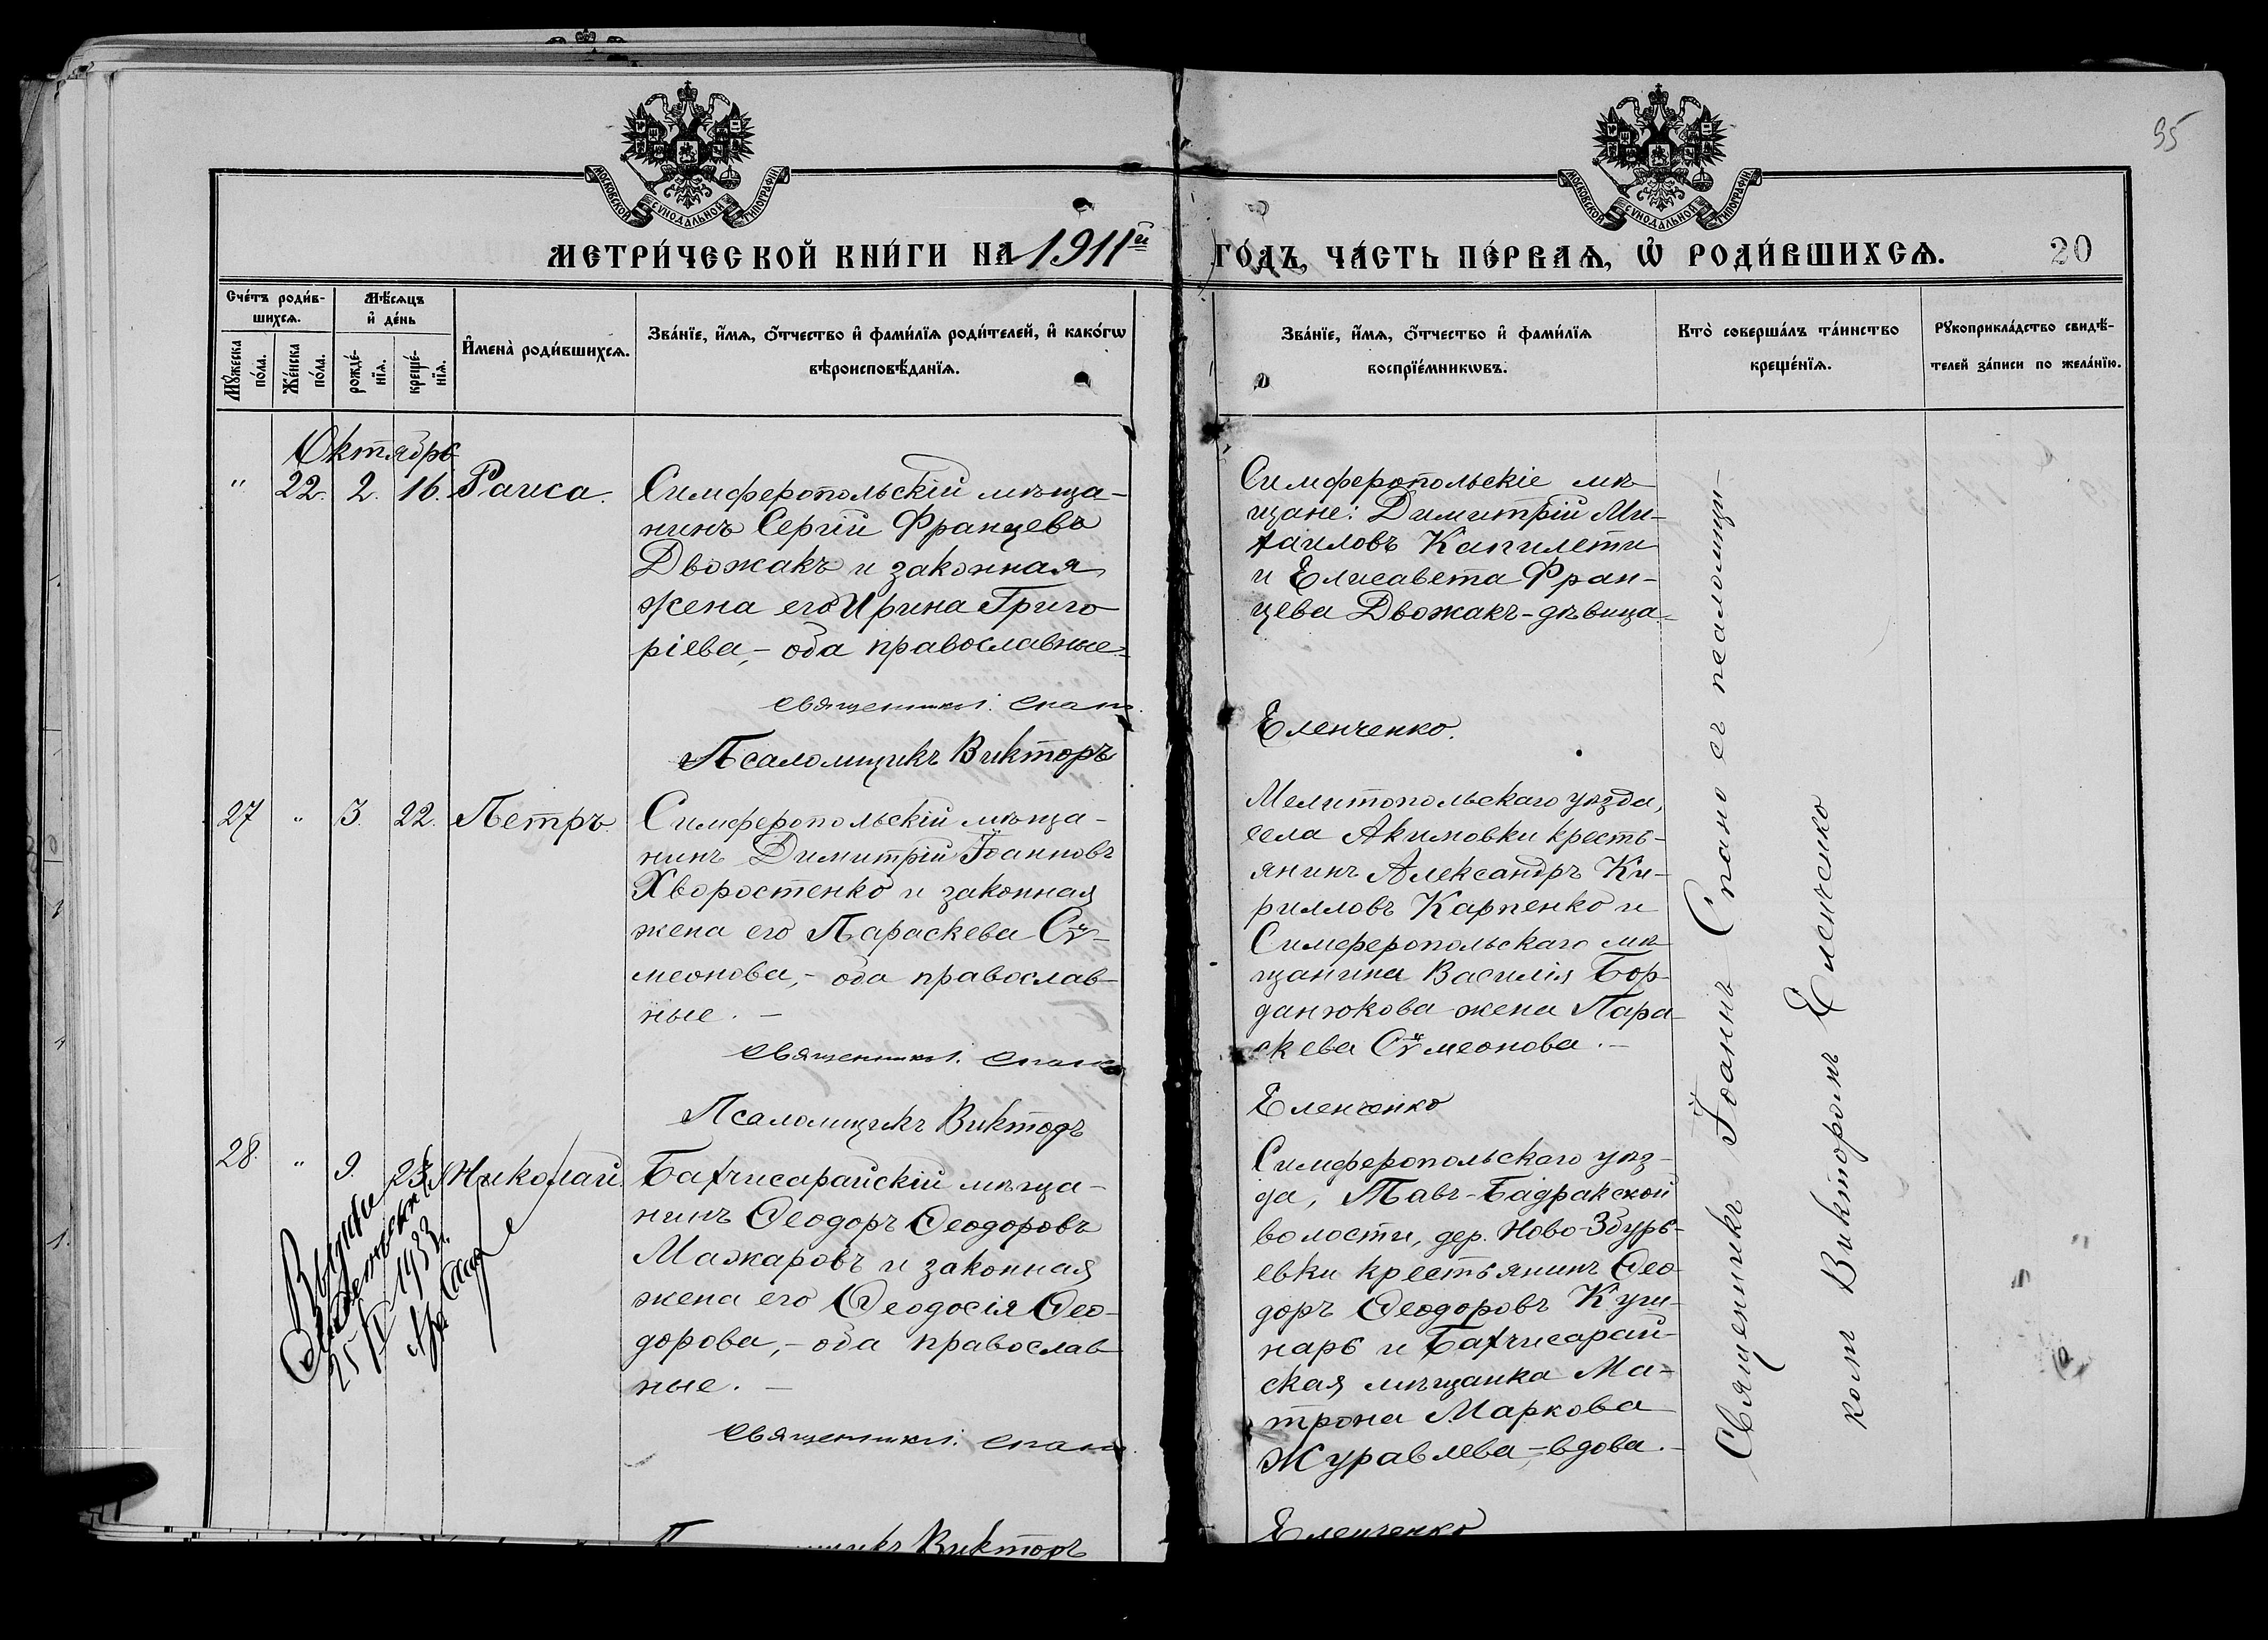 95
МОСКОВСКОЙ СѴНОДАЛЬНОЙ ТИПОГРАФІИ
МОСКОВСКОЙ СѴНОДАЛЬНОЙ ТИПОГРАФІИ
МЕТРИ́ЧЕСКОЙ КНИ́ГИ НА 1911й
ГО́ДЪ, ЧА́СТЬ ПЕ́РВАѦ, Ѡ҆ РОДИ́ВШИХСѦ.
20
Сче́тъ роди́в-
шихсѧ.
Мѣ́сѧцъ
и҆ де́нь
Мꙋ́жеска
по́ла.
Же́нска
по́ла.
рожде́-
нїѧ.
креще́-
нїѧ.
И҆мена̀ роди́вшихсѧ.
Зва́нїе, и҆́мѧ, ѻ҆́тчество и҆ фами́лїѧ роди́телей, и҆ како́гѡ
вѣроисповѣ́данїѧ.
Зва́нїе, и҆́мѧ, ѻ҆́тчество и҆ фами́лїѧ
воспрїе́мникѡвъ.
Кто̀ соверша́лъ та́инство
креще́нїѧ.
Рꙋкоприкла́дство свидѣ́-
телей за́писи по жела́нїю.
Октябрь
" 22. 2. 16. Раиса.
Симферопольскій мѣща-
нинъ Сергій Францевъ
Двожакъ и законная
жена его Ирина Григо
ріева,- оба православные.-
Священникъ І. Спано
Псаломщикъ Викторъ
Симферопольскіе мѣ-
щане: Димитрій Ми-
хаиловъ Капилети
и Елисавета Фран-
цева Двожакъ-дѣвица.
Еленченко.
27 " 3. 22. Петръ.
Симферопольскій мѣща-
нинъ Димитрій Іоанновъ
Хворостенко и законная
жена его Параскева Сѵ-
меонова,- оба православ-
ные. -
Священникъ І. Спано
Псаломщикъ Викторъ
Мелитопольскаго уѣзда,
села Акимовки кресть-
янинъ Александръ Ки-
рилловъ Карпенко и
Симферопольскаго мѣ-
щанина Василія Бор-
данюкова жена Пара-
скева Сѵмеонова. -
Еленченко
28. " 9. 23. Николай.
Бахчисарайскій мѣща-
нинъ Ѳеодоръ Ѳеодоровъ
Мажаровъ и законная
жена его Ѳеодосія Ѳео-
дорова,- оба православ-
ные. -
Священникъ І. Спано
Псаломщикъ Викторъ
25/IV 1933 г.
Симферопольскаго уѣз-
да, Тавъ-Бадракской
волости, дер. Ново-Збурь-
евки крестьянинъ Ѳео-
доръ Ѳеодоровъ Куш-
нарь и Бахчисарай-
ская мѣщанка Ма-
трона Маркова
Журавлева,-вдова.-
Еленченко
Священникъ Іоаннъ Спано съ псаломщи-
комъ Викторомъ Еленченко